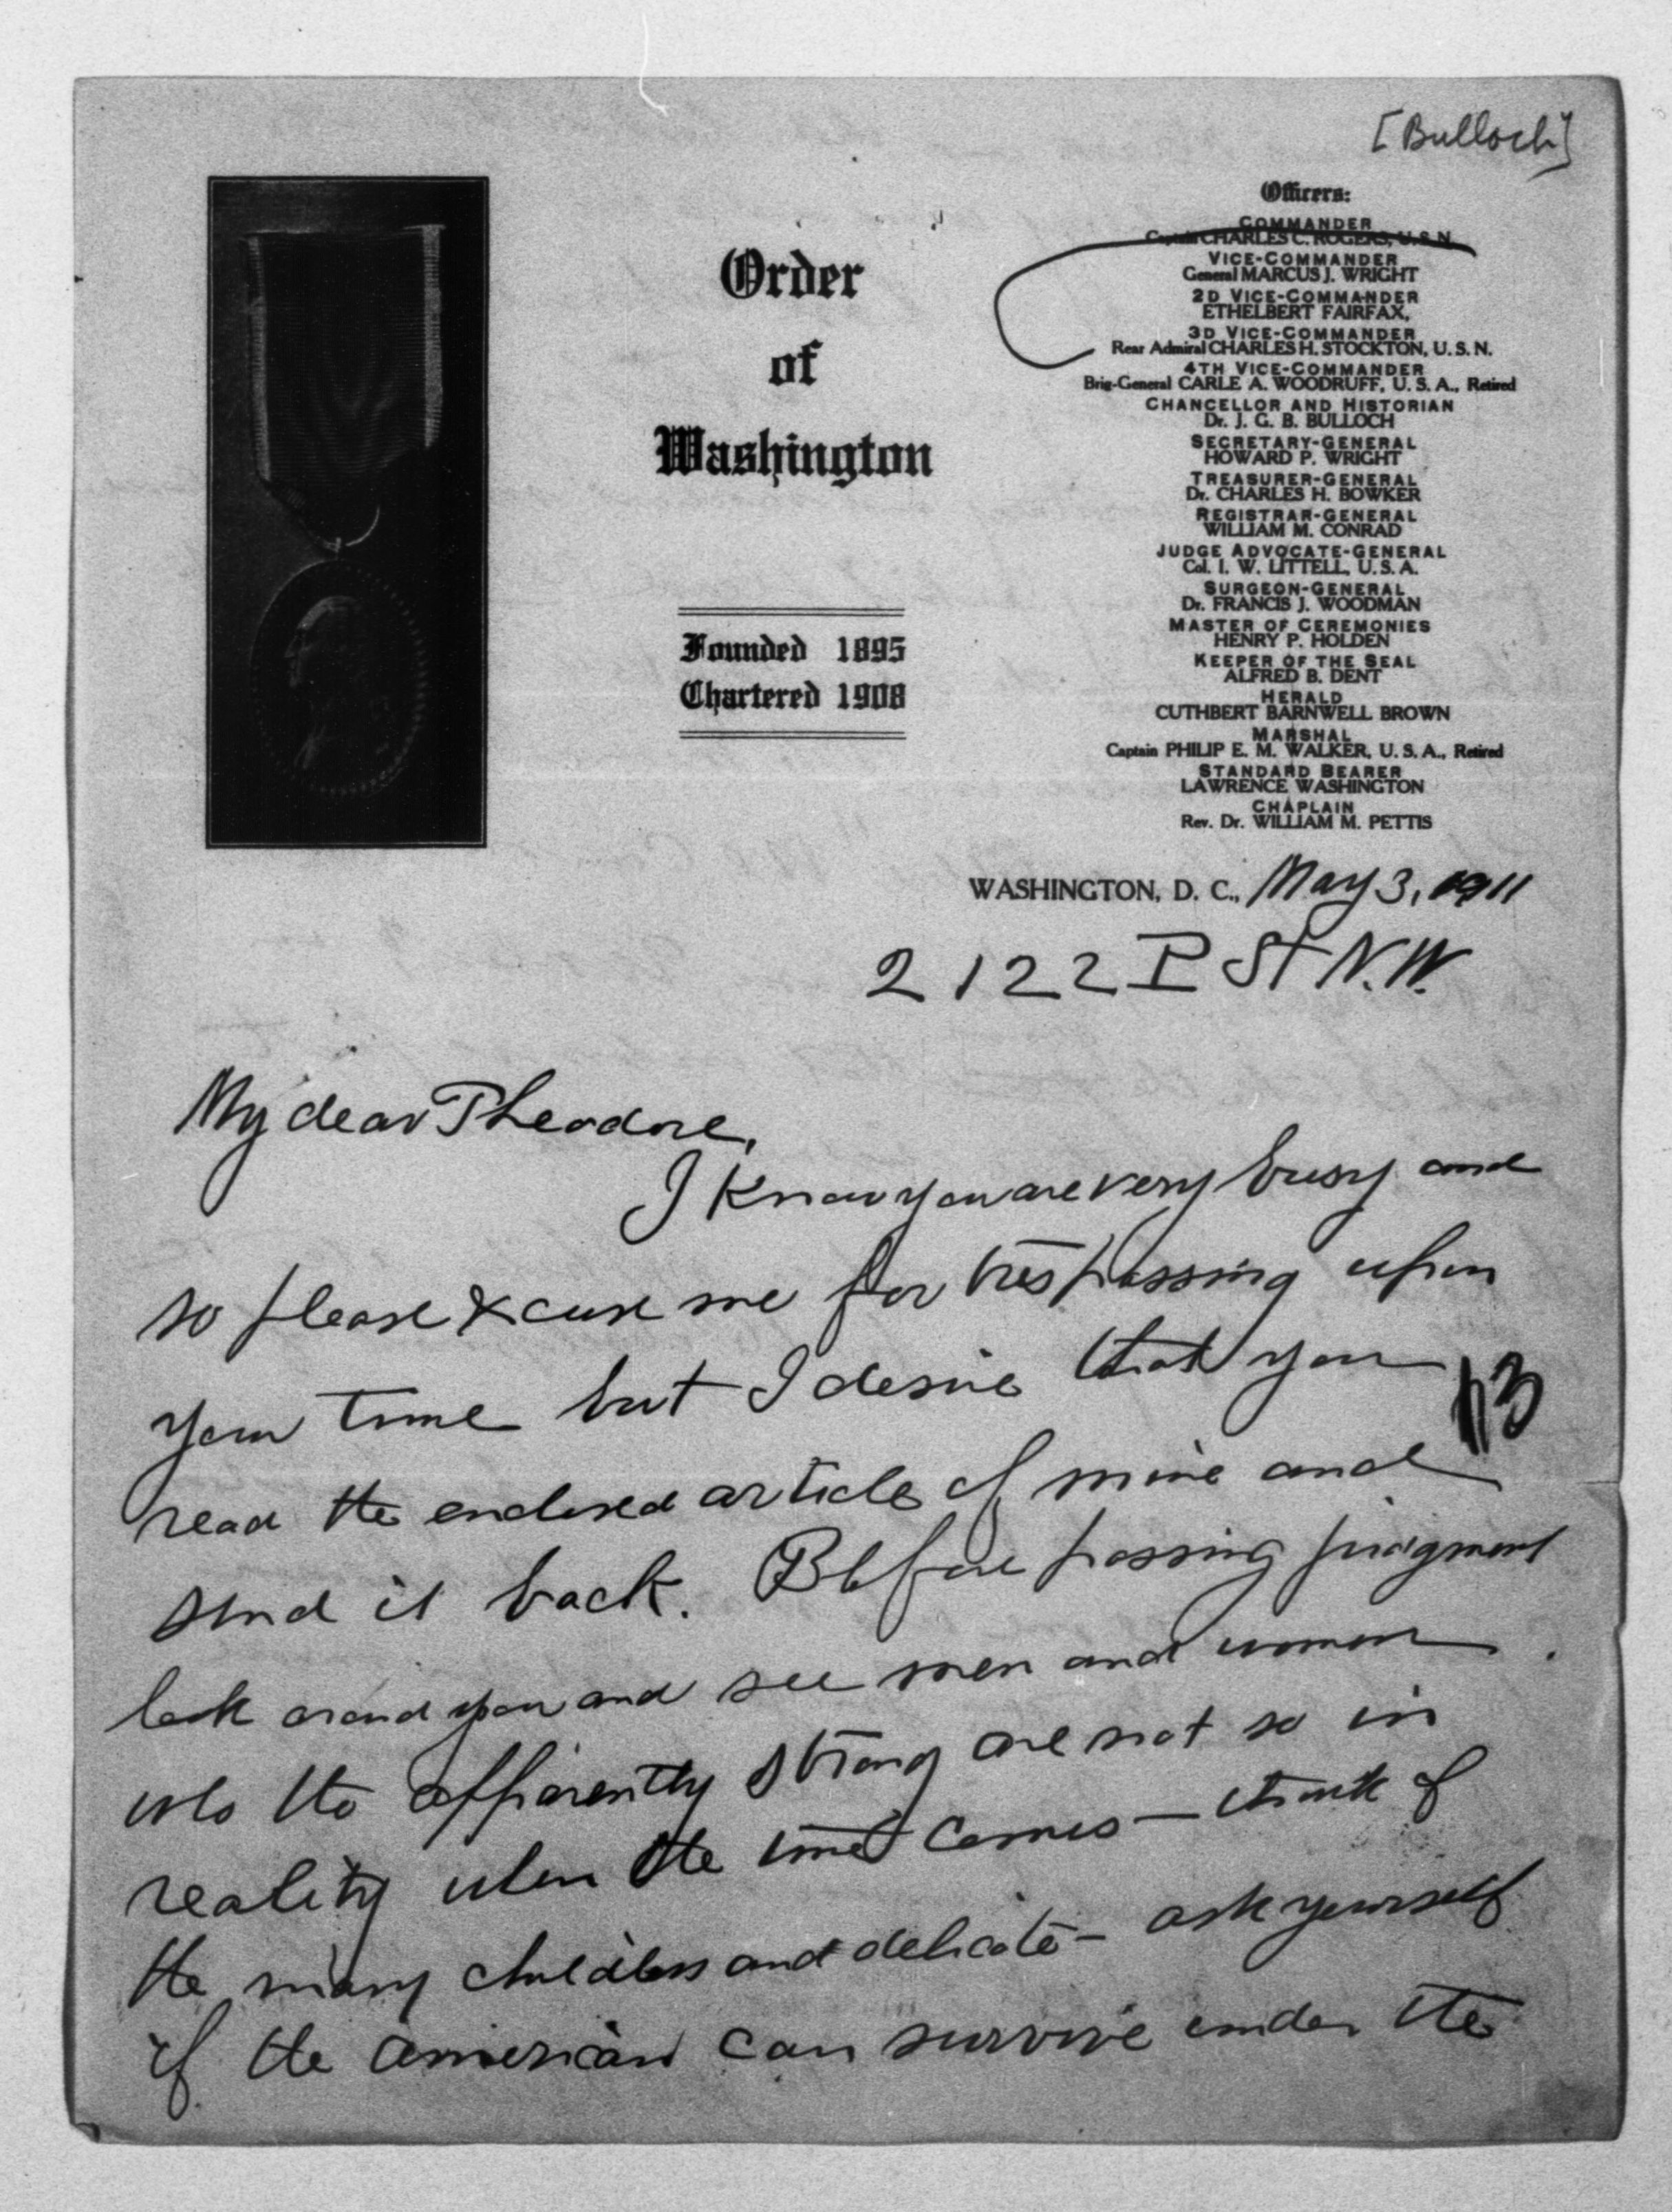 [Bulloch]
Order
of
Washington
Founded 1895
Chartered 1908
Officers:
COMMANDER
Captain CHARLES C. ROGERS, U.S.N.
VICE-COMMANDER
General MARCUS J. WRIGHT
2D VICE-COMMANDER
ETHELBERT FAIRFAX,
3D VICE-COMMANDER
Rear Admiral CHARLES H. STOCKTON, U. S. N.
4TH VICE-COMMANDER
Brig-General CARLE A. WOODRUFF, U. S. A., Retired
CHANCELLOR AND HISTORIAN
Dr. J. G. B. BULLOCH
SECRETARY-GENERAL
HOWARD P. WRIGHT
TREASURER-GENERAL
Dr. CHARLES H. BOWKER
REGISTRAR-GENERAL
WILLIAM M. CONRAD
JUDGE ADVOCATE-GENERAL
Col. I. W. LITTELL, U. S. A.
SURGEON-GENERAL
Dr. FRANCIS J. WOODMAN
MASTER OF CEREMONIES
HENRY P. HOLDEN
KEEPER OF THE SEAL
ALFRED B. DENT
HERALD
CUTHBERT BARNWELL BROWN
MARSHAL
Captain PHILIP E. M. WALKER, U. S. A., Retired
STANDARD BEARER
LAWRENCE WASHINGTON
CHAPLAIN
Rev. Dr. WILLIAM M. PETTIS
WASHINGTON, D. C., May 3, 1911
2122 P St N.W.
My dear Theodore,
I know you are very busy and
so please excuse me for trespassing upon
your time but I desire that you
113
read the enclosed article of mine and
send it back. Before passing judgment
look around you and see men and women
who tho apparently strong are not so in
reality when the time comes — think of
the many childless and delicate — ask yourself
if the American can survive under the